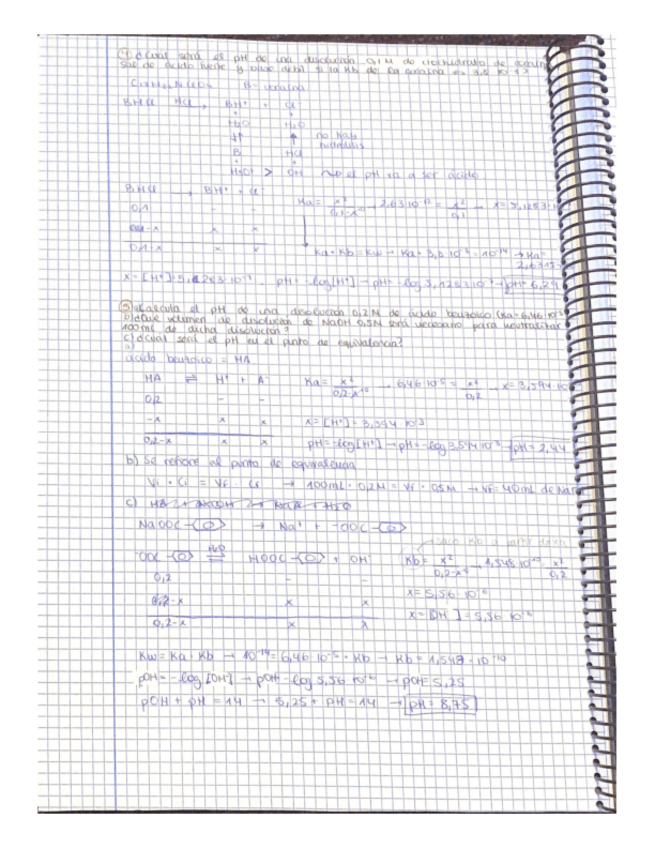 4) ¿Cuál será el pH de una disolución 0,1 M de clorhidrato de
sal de ácido fuerte y base débil si la Kb de la cocaína es
B = cocaína
BHCl → BH⁺ + Cl⁻
H₂O H₂O
no hay
hidrólisis
B HCl
H₃O⁺ > OH⁻ → el pH va a ser ácido
BHCl → BH⁺ + Cl⁻ Ka = x²/0,1-x → 2,63·10⁻¹² = x²/0,1 → x = 5,1283·10
0,1 - -
0,1-x x x
0,1-x x x Ka · Kb = Kw → Ka =
x = [H⁺] pH = -log[H⁺] → pH = -log → pH = 6,29
5) a) Calcula el pH de una disolución 0,2 M de ácido benzoico (Ka = 6,46·10⁻⁵
b) ¿Qué volumen de disolución de NaOH 0,5M será necesario para neutralizar
100 mL de dicha disolución?
c) ¿Cuál será el pH en el punto de equivalencia?
a)
ácido benzoico = HA
HA ⇌ H⁺ + A⁻ Ka = x²/0,2-x → 6,46·10⁻⁵ = x²/0,2 → x = 3,594·10
0,2 - -
-x x x x = [H⁺] = 3,594·10⁻³
0,2-x x x pH = -log[H⁺] → pH = -log 3,594·10⁻³ → pH = 2,44
b) Se refiere al punto de equivalencia
Vi · Ci = Vf · Cf → 100mL · 0,2M = Vf · 0,5M → Vf = 40mL de NaOH
c) HA + NaOH → NaA + H₂O
NaOOC- → Na⁺ + ⁻OOC-
⁻OOC- H₂O ⇌ HOOC- + OH⁻ Kb = x²/0,2-x → 1,548·10⁻¹⁰ = x²/0,2
0,2 - - x = 5,56·10⁻⁶
0,2-x x x x = [OH⁻] = 5,56·10⁻⁶
0,2-x x x
Kw = Ka · Kb → 10⁻¹⁴ = 6,46·10⁻⁵ · Kb → Kb = 1,548·10⁻¹⁰
pOH = -log[OH⁻] → pOH = -log 5,56·10⁻⁶ → pOH = 5,25
pOH + pH = 14 → 5,25 + pH = 14 → pH = 8,75